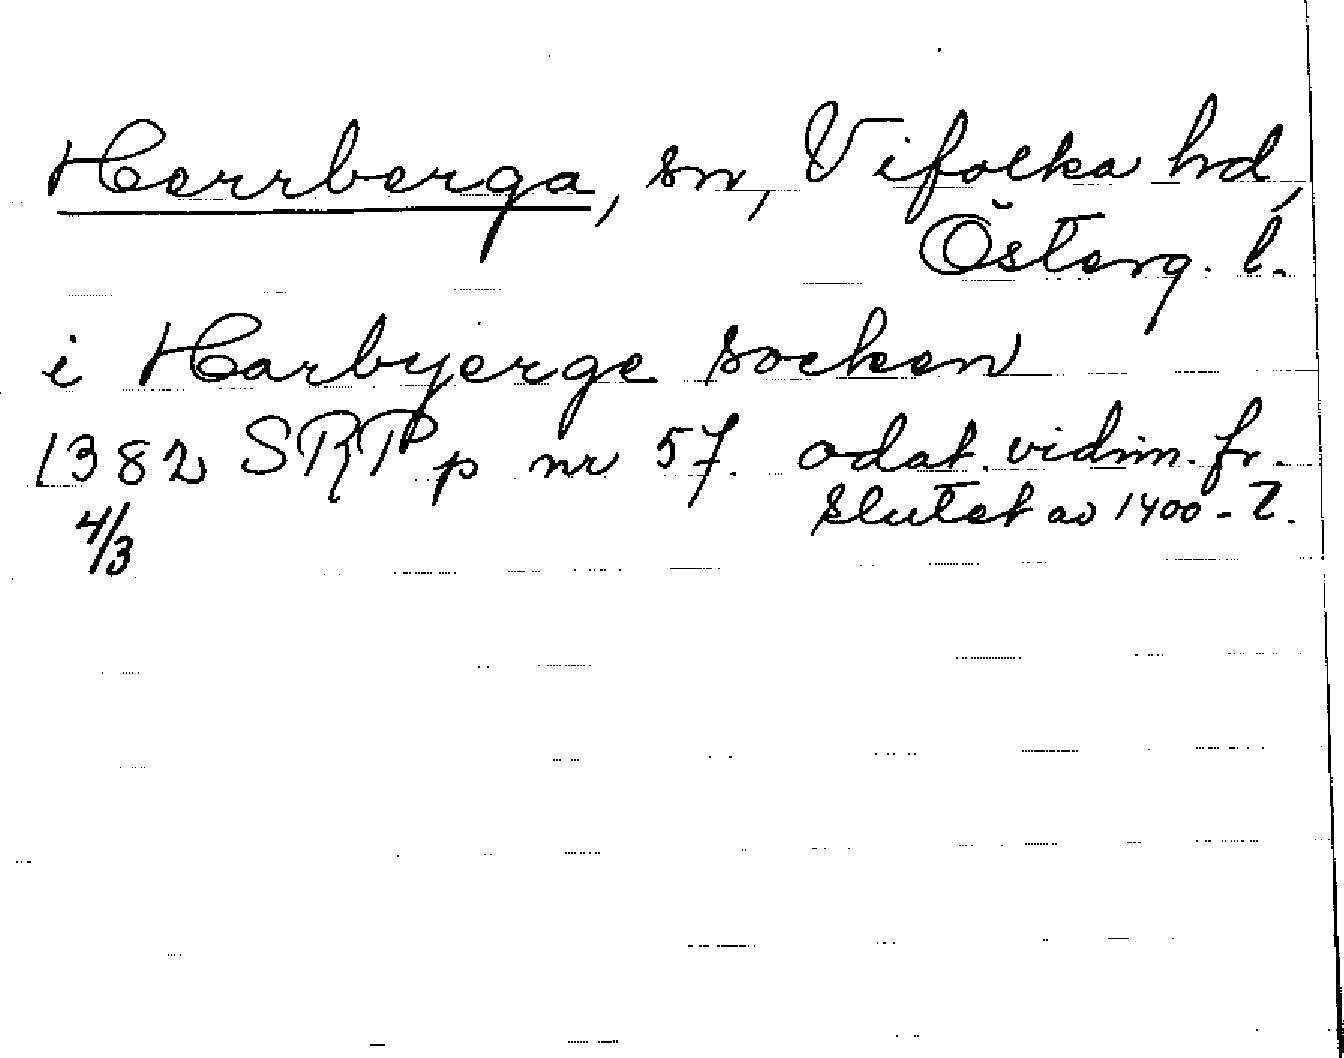 Herrberga, sn, Vifolka hd,
Österg. l.
i Harbyerge socken
1382 SRPp nr 57. odat. vidim. fr.
4/3 slutet av 1400-t.